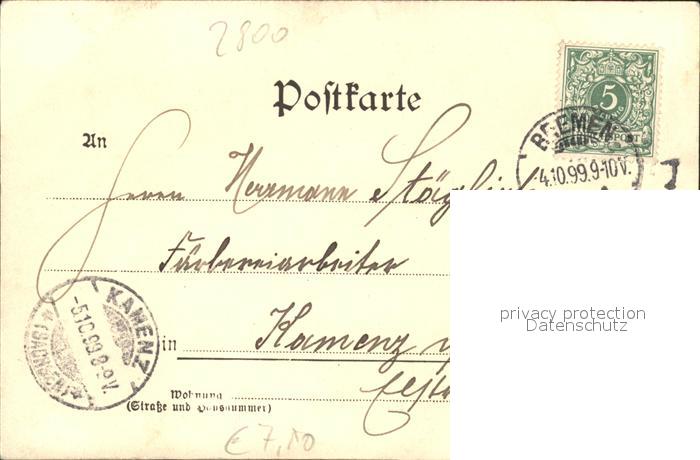 2800
Postkarte
5
POST
BREMEN
4.10.99.9-10V.
An
Herrn Herrmann
Färbereiarbeiter
KAMENZ
-5.10.99.8-9V.
(SACHSEN)
in Kamenz
Wohnung
(Straße und Hausnummer)
€ 7,50
privacy protection
Datenschutz